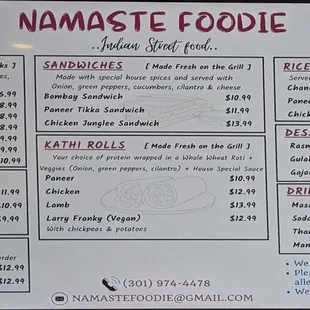 NAMASTE FOODIE
..Indian Street food..
SANDWICHES [ Made Fresh on the Grill ]
Made with special house spices and served with
Onion, green peppers, cucumbers, cilantro & cheese
Bombay Sandwich $10.99
Paneer Tikka Sandwich $11.99
Chicken Junglee Sandwach $13.99
KATHI ROLLS [ Made Fresh on the Grill ]
Your choice of protein wrapped in a Whole Wheat Roti +
Veggies (Onion, green peppers, cilantro) + House Special Sauce
Paneer $10.99
Chicken $12.99
Lamb $13.99
Larry Franky (Vegan) $12.99
With chickpeas & potatoes
(301) 974-4478
NAMASTEFOODIE@GMAIL.COM
10.99
11.99
$9.99
order
$12.99
$12.99
RICE
Serve
Chan
Panee
Chick
DES
Rasm
Gulab
Gajar
DRI
Masa
Soda
Than
Man
We
Plea
alle
We